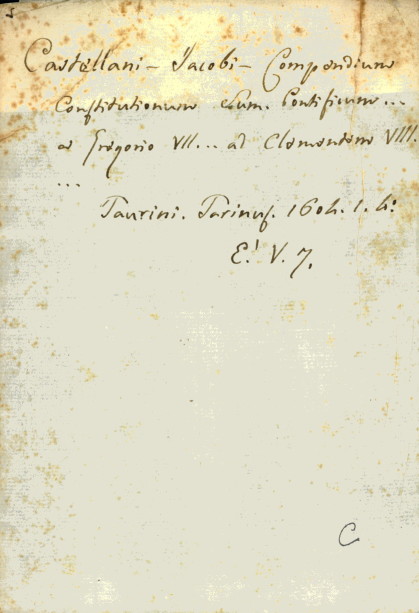 Castellani - Jacobi - Compendium
Constitutionum Sum. Pontificum...
a Gregorio VII... ad Clementem VIII.
...
Taurini. Tarinus. 1604. 1. 4:
E. V. 7.
C